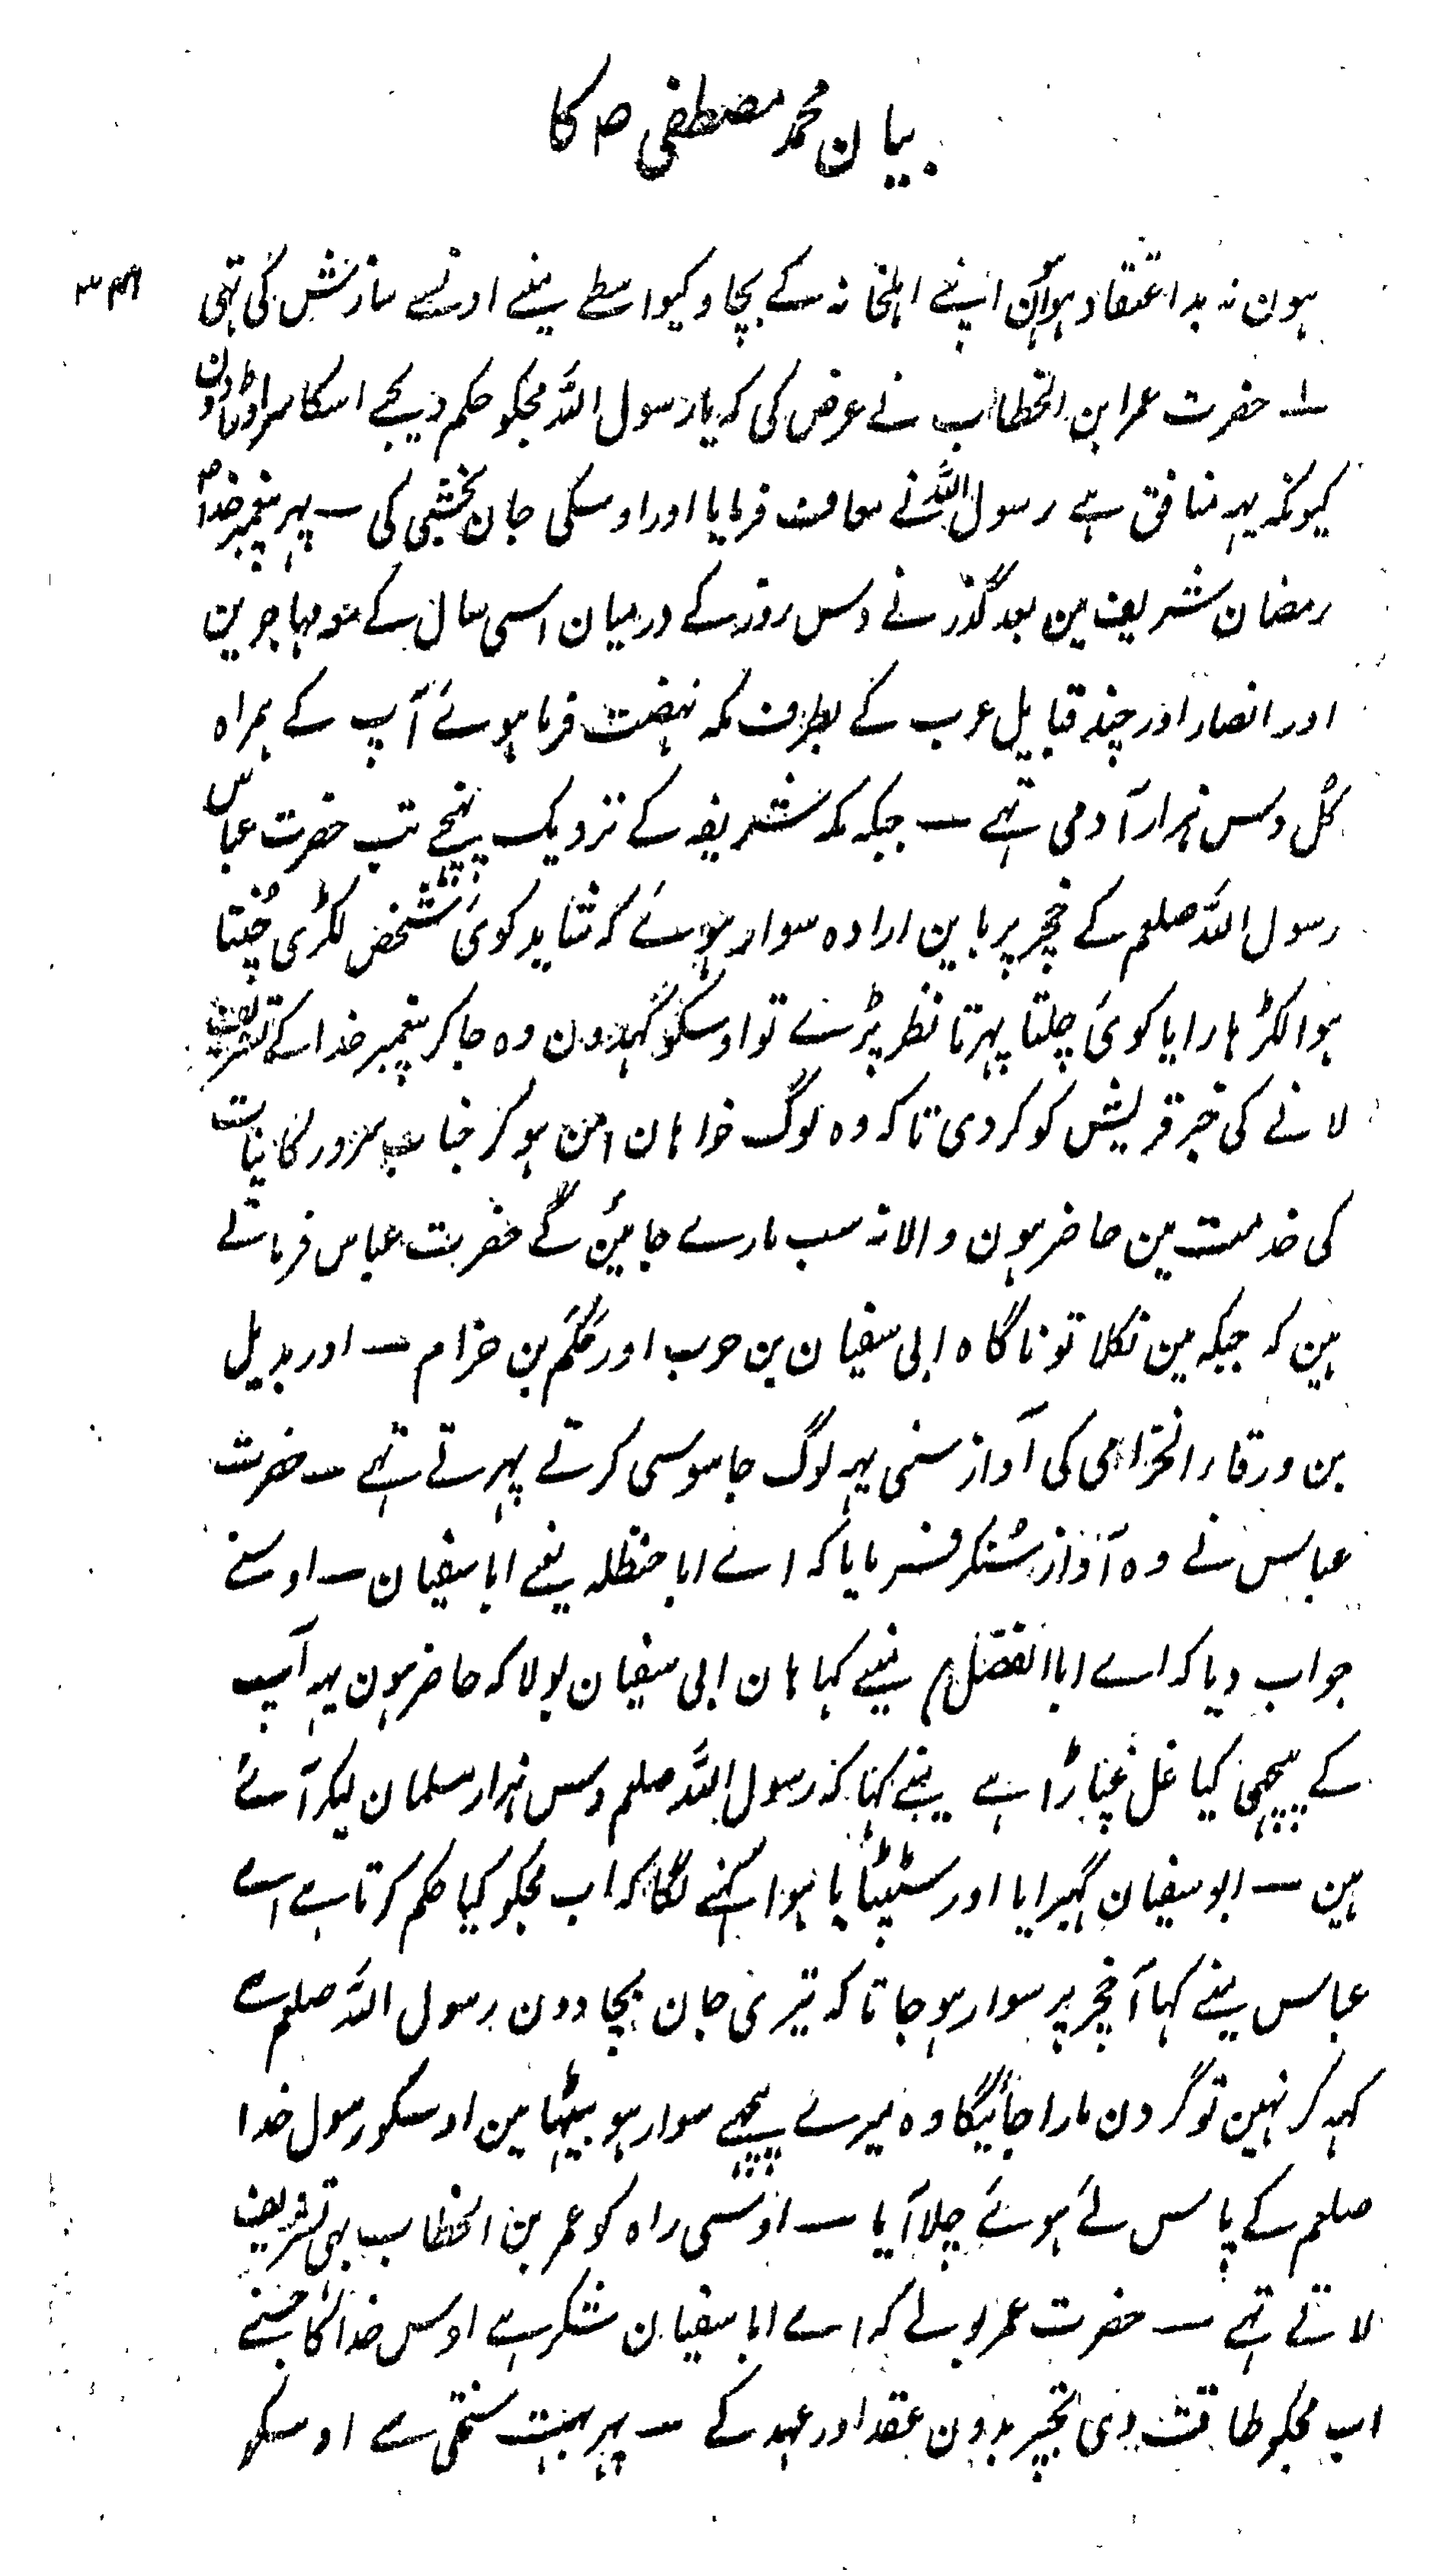 بیان محمد مصطفی ص کا
ہون نہ بد اعتقاد ہوا لکن اپنے اہلخانہ کے بچاو کیواسطے مینے اونسے سازش کی تہی
ـ حضرت عمر ابن الخطاب نے عرض کی کہ یا رسول اللہ مجکو حکم دیجے اسکا سر اوڑادون
کیونکہ یہہ منافق ہے رسول اللہ نے معاف فرمایا اور اوسکی جان بخشی کی ـ پہر پیغمبر خدا ص
رمضان شریف مین بعد گذرنے دس روز کے درمیان اسی سال کے مہاجرین
اور انصار اور چند قبایل عرب کے بطرف مکہ نہضت فرما ہوئے آپ کے ہمراہ
کُل دس ہزار آدمی تہے ـ جبکہ مکہ شریفہ کے نزدیک پہنچے تب حضرت عباس
رسول اللہ صلعم کے خچر پر باین ارادہ سوار ہوئے کہ شاید کوئی شخص لکڑی چُنتا
ہوا لکڑہارا یا کوئی چلتا پہرتا نظر پڑے تو اوسکو کہدون وہ جاکر پیغمبر خدا کے تشریف
لانے کی خبر قریش کو کردی تاکہ وہ لوگ خواہان امن ہوکر جناب سرور کاینات
کی خدمت مین حاضر ہون والا نہ سب مارے جائین گے حضرت عباس فرماتے
ہین کہ جبکہ مین نکلا تو ناگاہ ابی سفیان بن حرب اور حکم بن حزام ـ اور بدیل
بن ورقاء الخزاعی کی آواز سنی یہہ لوگ جاسوسی کرتے پہرتے تہے ـ حضرت
عباس نے وہ آواز سُنکر فرمایا کہ اے ابا حنظلہ یعنے ابا سفیان ـ اوسنے
جواب دیا کہ اے ابا الفضل مینے کہا ہان ابی سفیان بولا کہ حاضر ہون یہہ آپ
کے پیچہی کیا غل غپاڑا ہے مینے کہا کہ رسول اللہ صلعم دس ہزار مسلمان لیکر آئے
ہین ـ ابو سفیان گہبرایا اور سٹپٹایا ہوا کہنے لگا کہ اب مجکو کیا حکم کرتا ہے اے
عباس مینے کہا آ خچر پر سوار ہو جا تاکہ تیری جان بچادون رسول اللہ صلعم سے
کہہ کر نہین تو گردن مارا جائیگا وہ میرے پیچہے سوار ہو بیٹہا مین اوسکو رسول خدا
صلعم کے پاس لئے ہوئے چلا آیا ـ اوسی راہ کو عمر بن الخطاب بہی تشریف
لاتے تہے ـ حضرت عمر بولے کہ اے ابا سفیان شکر ہے اوس خدا کا جسنے
اب مجکو طاقت دی تجہپر بدون عقد اور عہد کے ـ پہر بہت سختی سے اوسکو